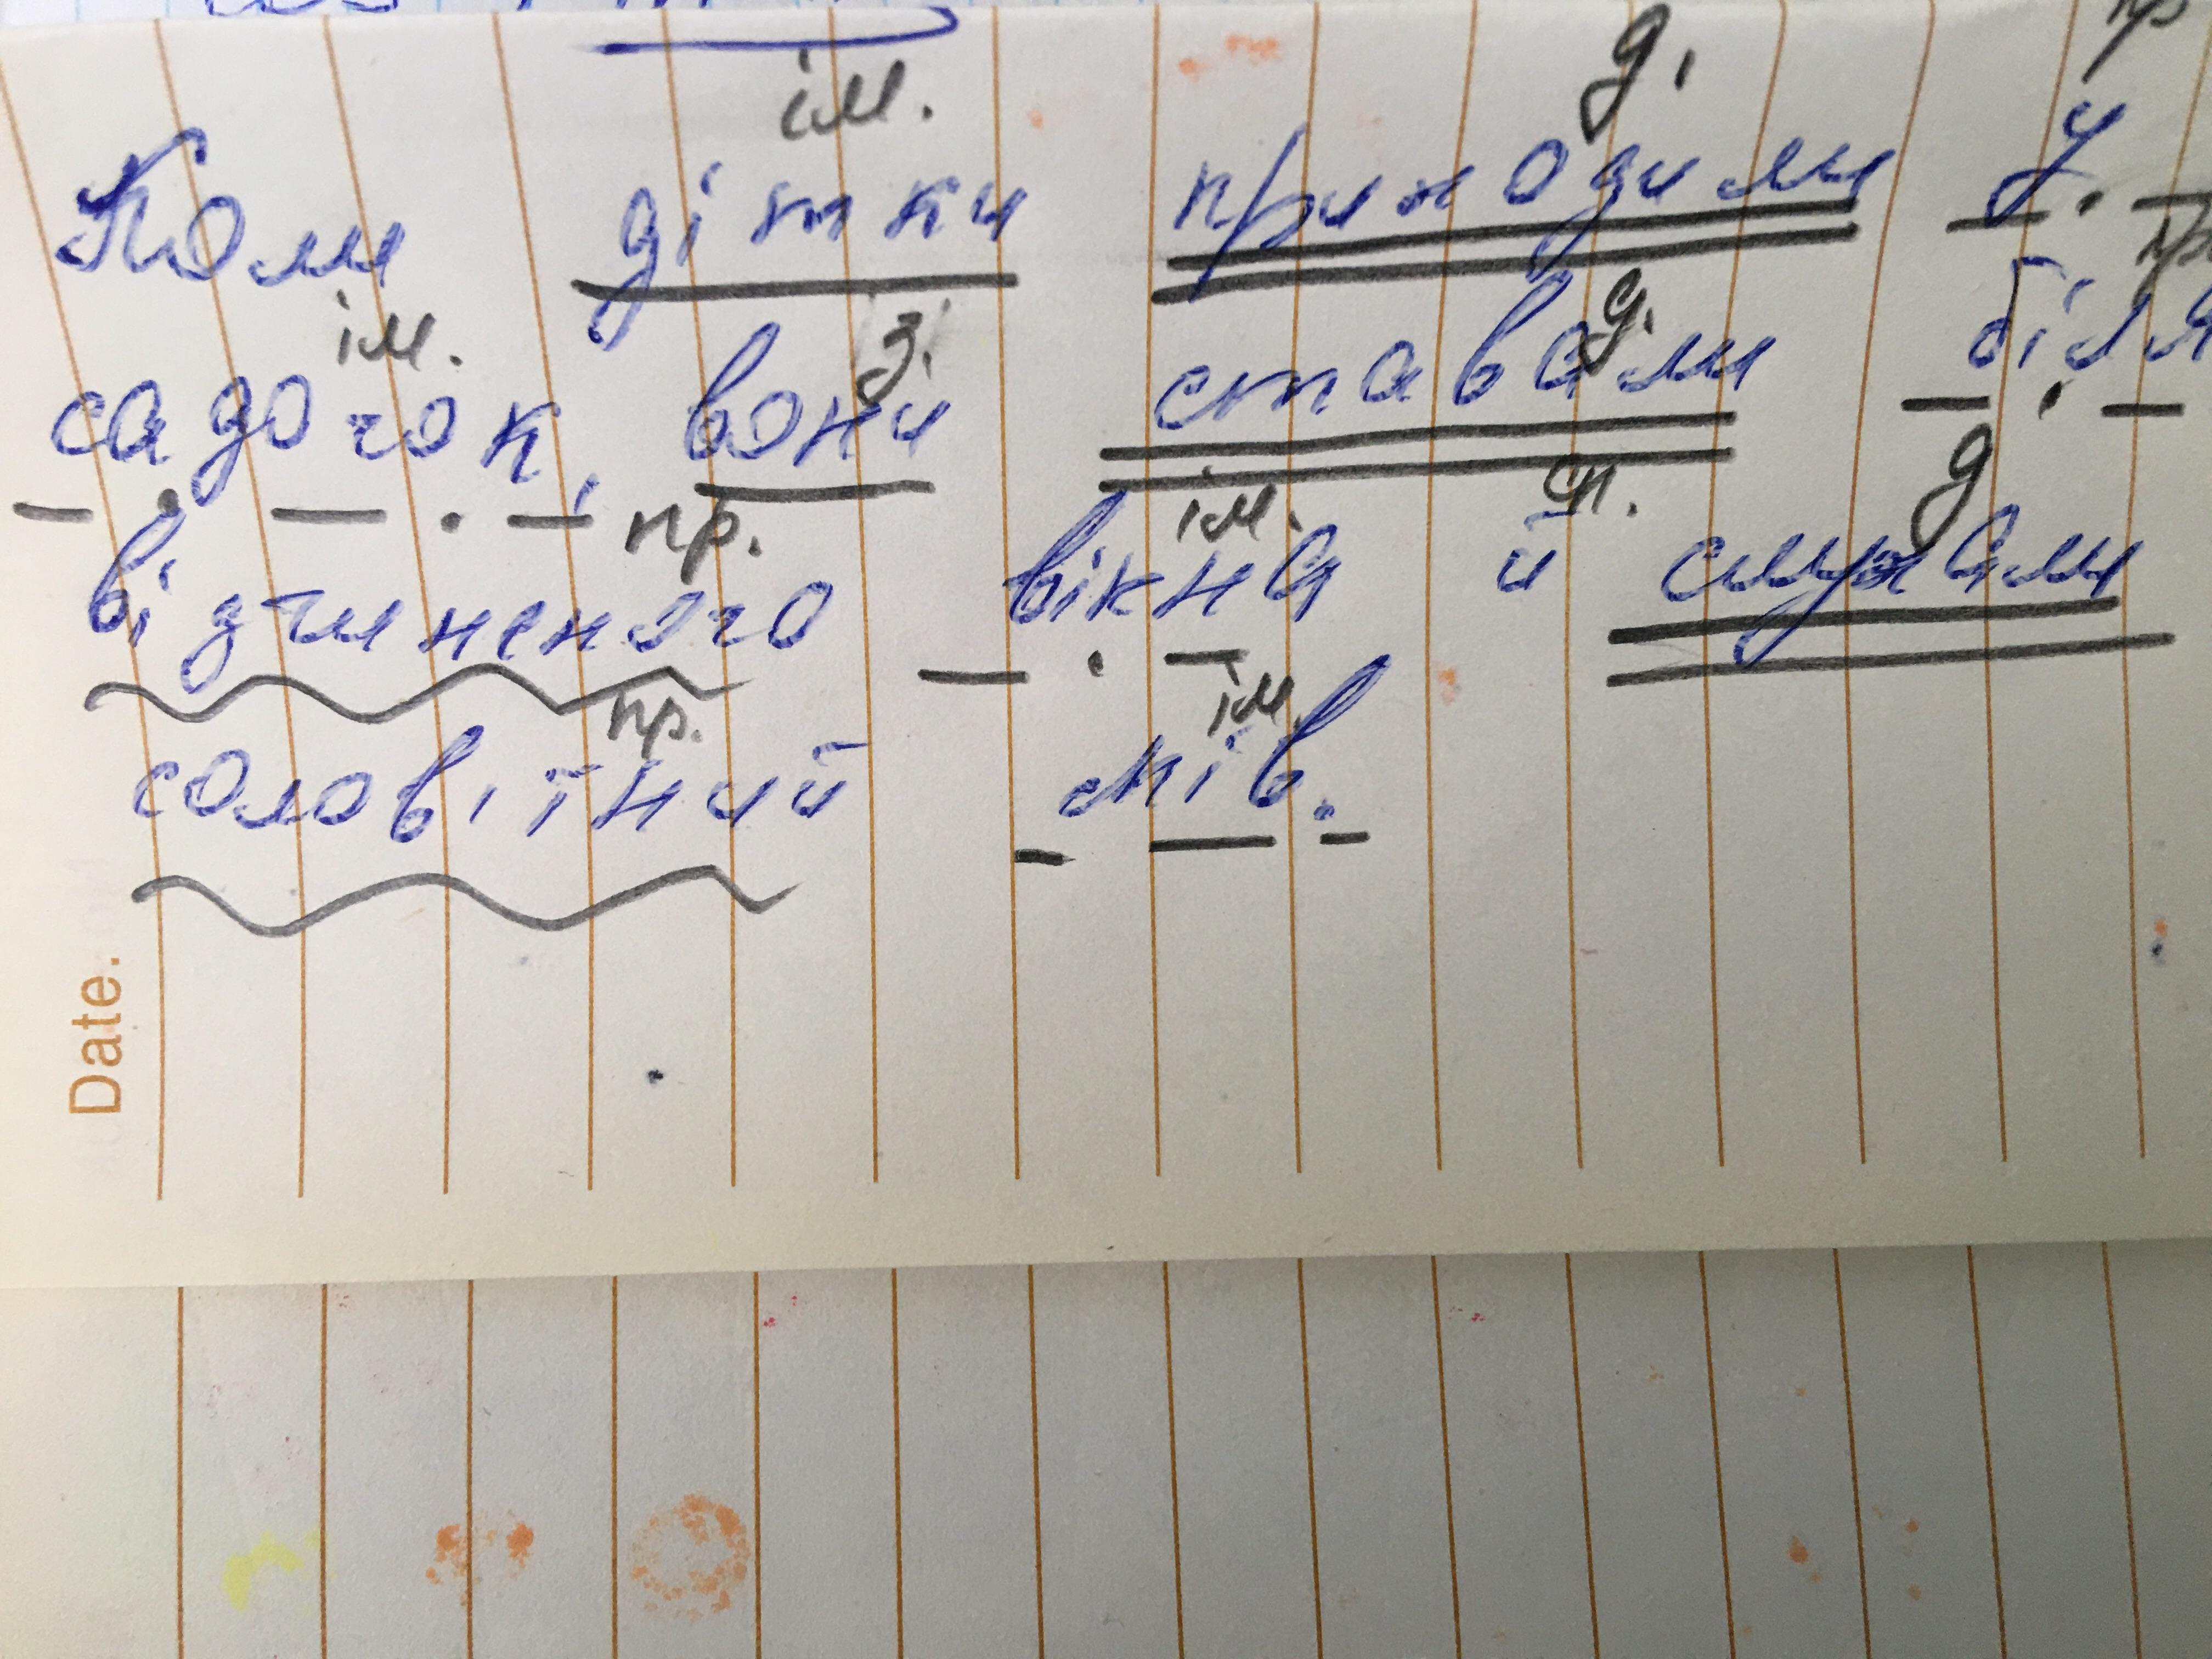 ім. д.
Коли дітки приходили у
ім. з. д.
садочок, вони ставали біля
пр. ім. сп. д
відчиненого вікна й слухали
пр. ім.
солов'їний спів.
Date.